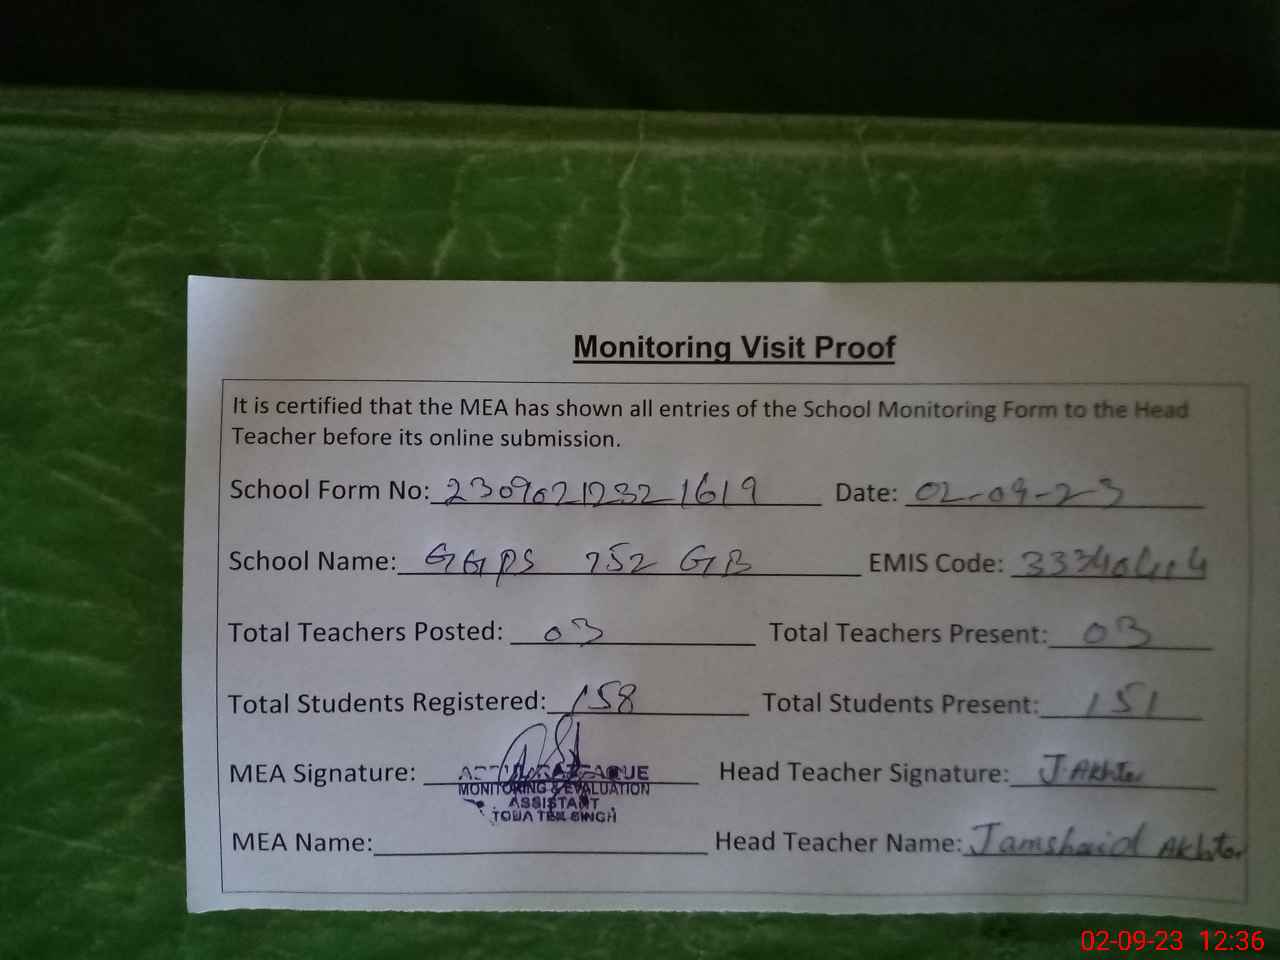 Monitoring Visit Proof
It is certified that the MEA has shown all entries of the School Monitoring Form to the Head
Teacher before its online submission.
School Form No: 23090212321619 Date: 02-09-23
School Name: GGPS 752 GB EMIS Code: 33340414
Total Teachers Posted: 03 Total Teachers Present: 03
Total Students Registered: 158 Total Students Present: 151
MEA Signature: Head Teacher Signature: J. Akhter
MONITORING & EVALUATION
ASSISTANT
TOBA TEK SINGH
MEA Name: Head Teacher Name: Jamshaid Akhter
02-09-23 12:36